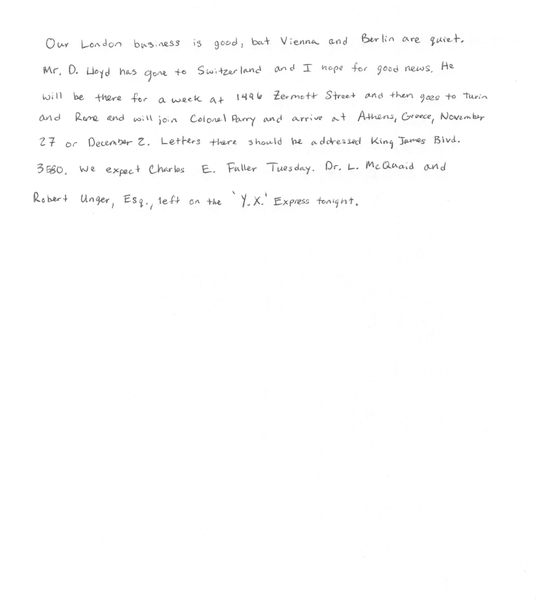 Our London business is good, but Vienna and Berlin are quiet.
Mr. D. Lloyd has gone to Switzerland and I hope for good news. He
will be there for a week at 1496 Zermott Street and then goes to Turin
and Rome and will join Colonel Parry and arrive at Athens, Greece, November
27 or December 2. Letters there should be addressed King James Blvd.
3580. We expect Charles E. Fuller Tuesday. Dr. L. McQuaid and
Robert Unger, Esq., left on the 'Y.X.' Express tonight.